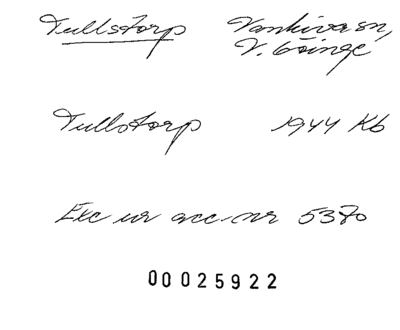 Tullstorp Vankiva sn,
V. Göinge
Tullstorp 1944 Kb
Exc ur acc.nr 5370
00025922